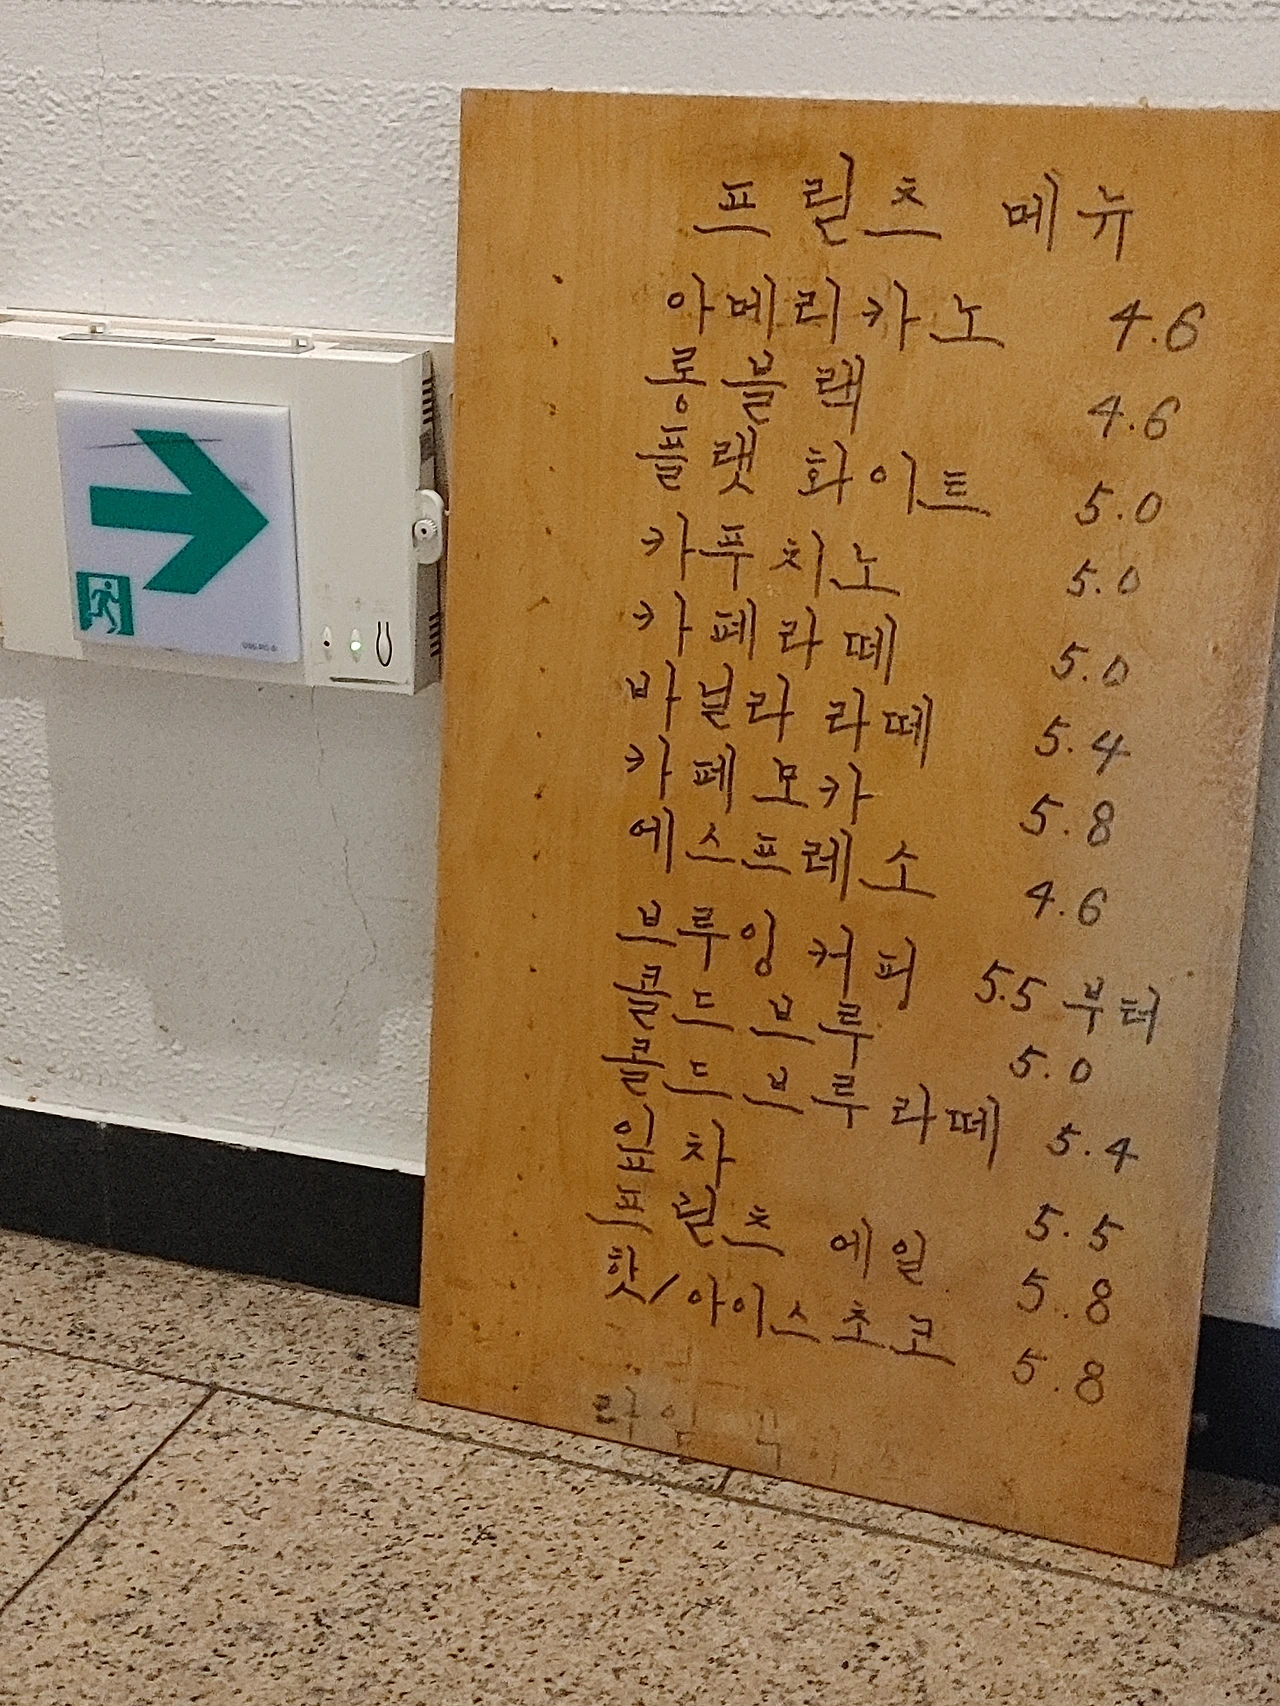 프릳츠 메뉴
아메리카노 4.6
롱블랙 4.6
플랫 화이트 5.0
카푸치노 5.0
카페라떼 5.0
바닐라 라떼 5.4
카페모카 5.8
에스프레소 4.6
브루잉 커피 5.5 부터
콜드 브루 5.0
콜드 브루 라떼 5.4
잎차 5.5
프릳츠 에일 5.8
핫/아이스초코 5.8